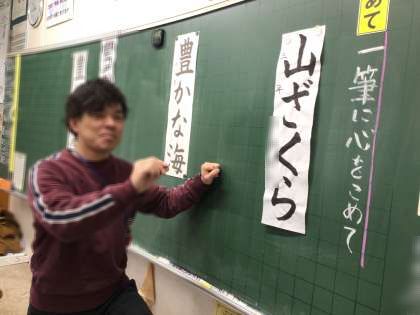 めて
一筆に心をこめて
山ざくら
豊かな海
豊